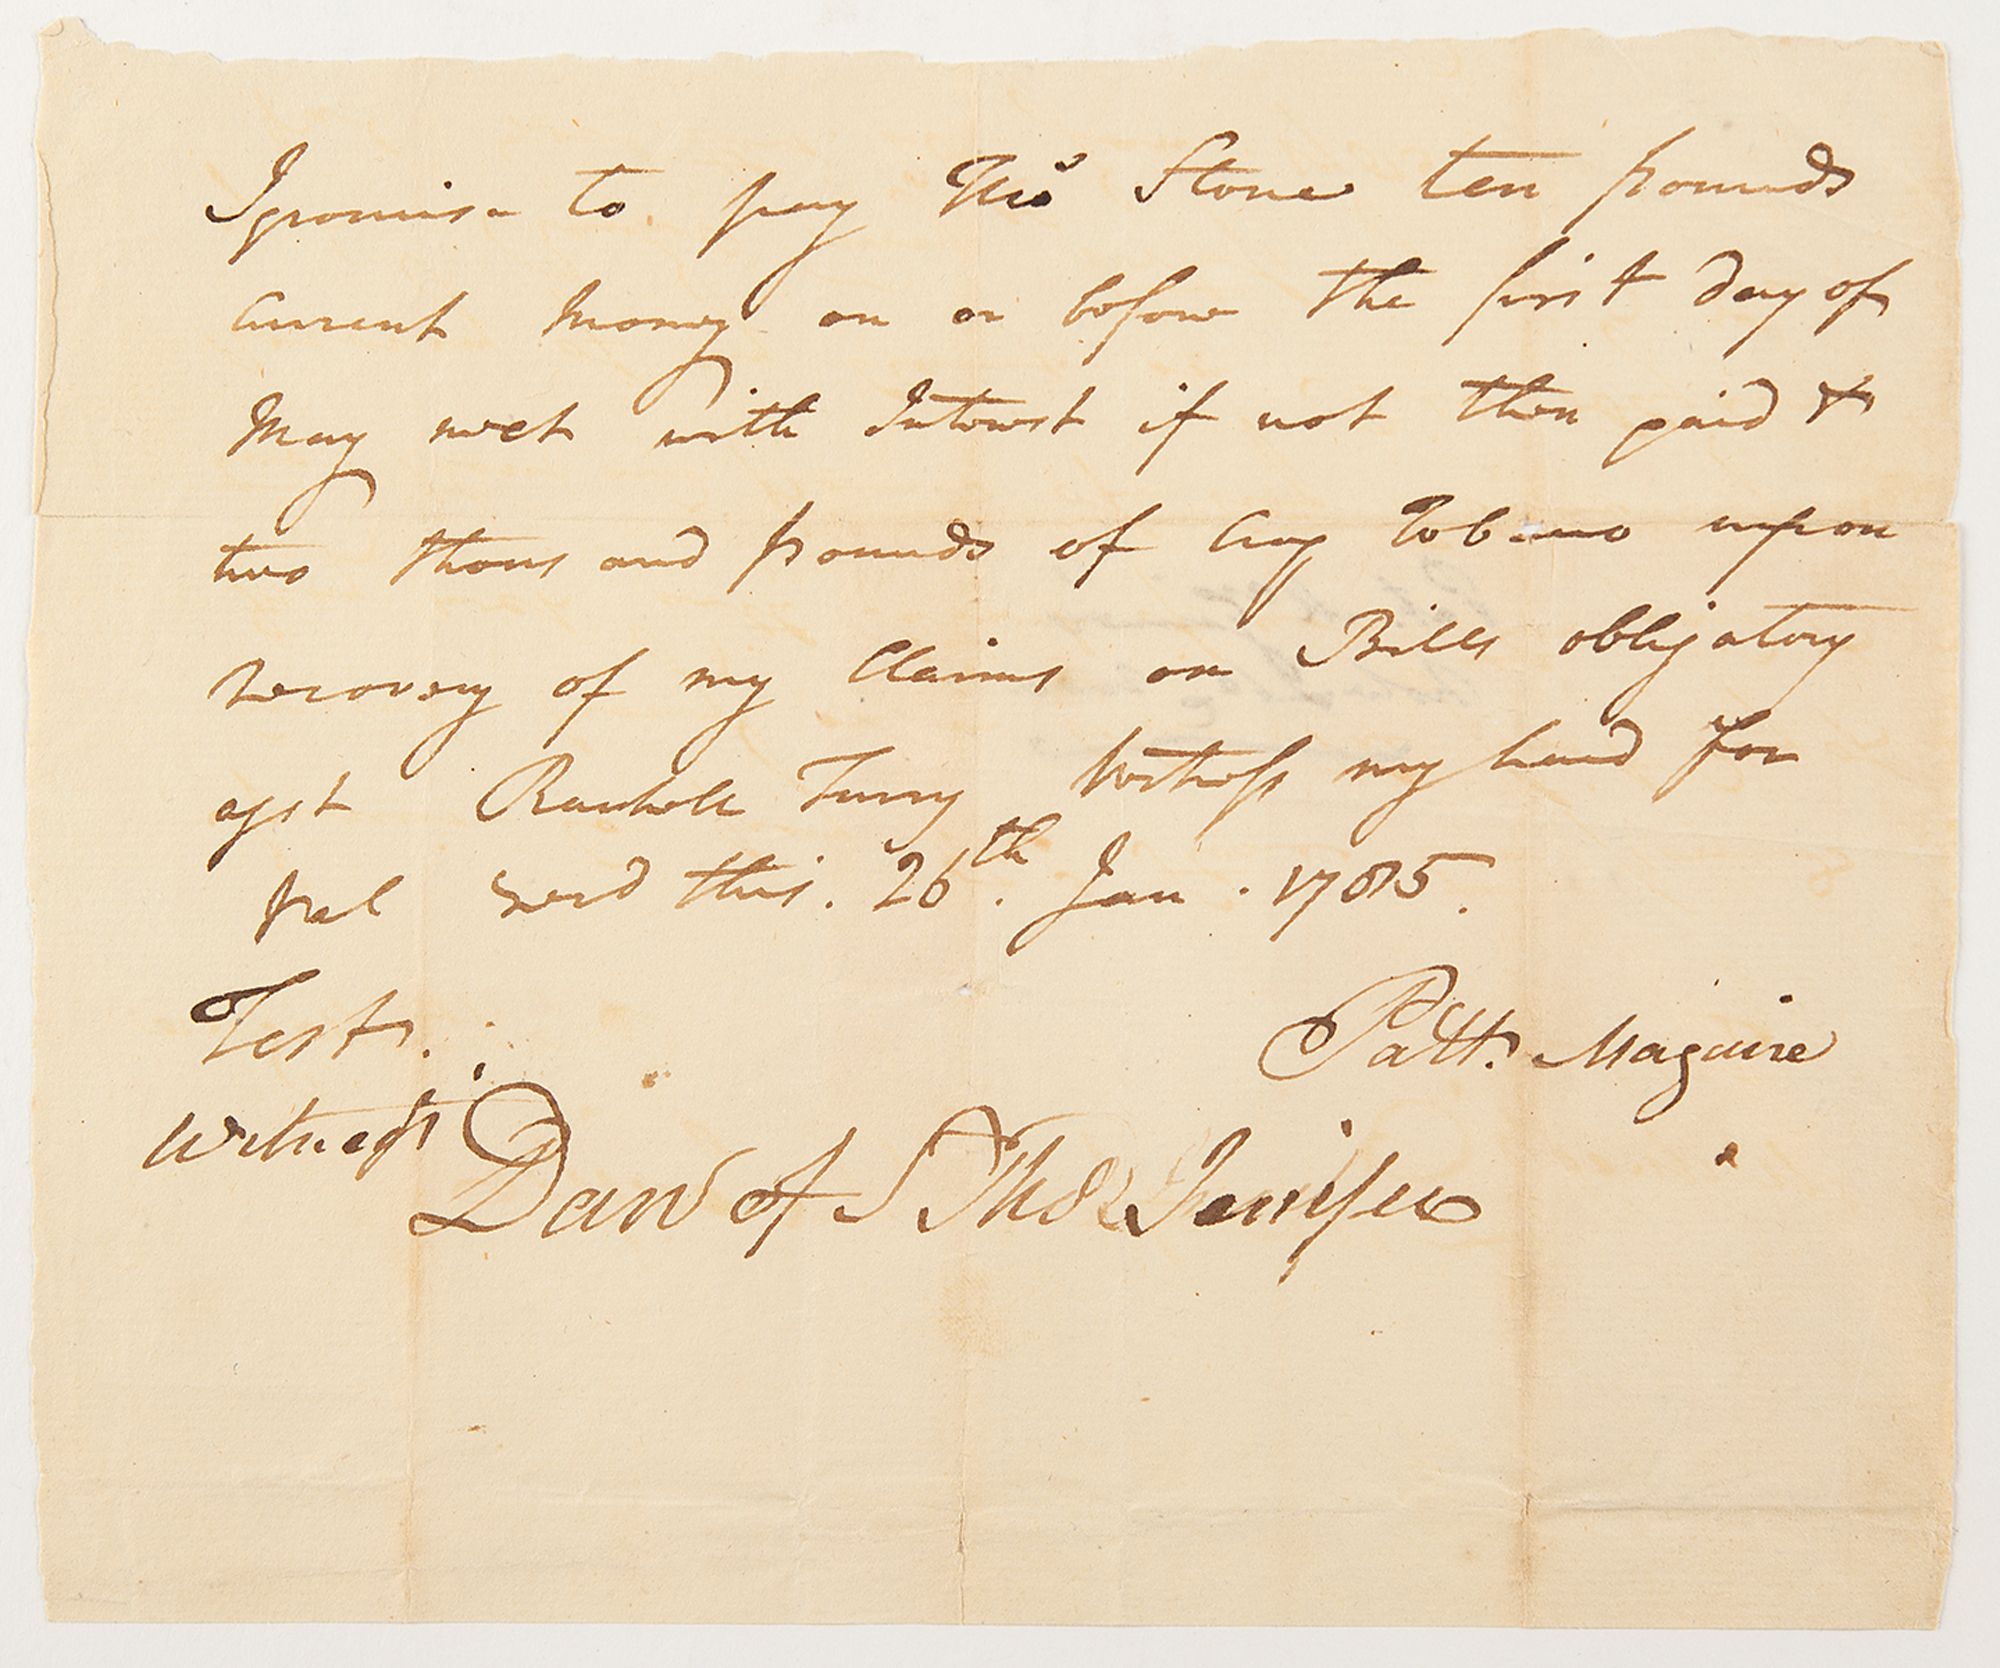 I promise to pay Thos Stone ten pounds
Current money on or before the first day of
May next with Interest if not then paid &
two thousand pounds of Crop Tobacco upon
recovery of my Claims on Bills obligatory
agst Turry Witness my hand for
val recd this. 26th. Jan. 1785.
Test.
Patt. Maguire
Witness
Danl of St Thos Jenifer